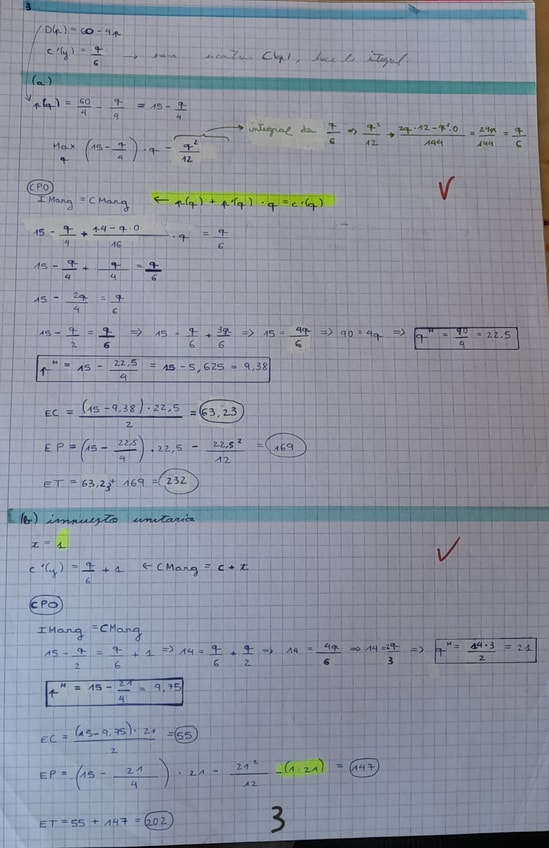 3
D(p) = 60 - 4p
c'(y) = q/6 → para encontrar C(q), hace la integral.
(a)
p(q) = 60/4 - q/4 = 15 - q/4
Max q (15 - q/4) · q - q²/12 → integral da q/6 => q²/12 → 2q·12-q²·0/144 = 24q/144 = q/6
CPO
IMang = CMang ← p(q) + p'(q) · q = c'(q)
15 - q/4 + 1.4-q.0/16 · q = q/6
15 - q/4 + q/4 = q/6
15 - 2q/4 = q/6
15 - q/2 = q/6 => 15 - q/6 + 3q/6 => 15 = 4q/6 => 90 = 4q => qᴹ = 90/4 = 22.5
pᴹ = 15 - 22,5/4 = 15 - 5,625 = 9,38
EC = (15-9,38)·22,5/2 = 63,23
EP = (15 - 22,5/4) . 22,5 - 22,5²/12 = 169
ET = 63,23 + 169 = 232
(b) impuesto unitario
x = 1
c'(y) = q/6 + 1 ← CMang = c + x
CPO
IMang = CMang
15 - q/2 = q/6 + 1 => 14 = q/6 + q/2 => 14 = 4q/6 => 14 = 2q/3 => qᴹ = 14·3/2 = 21
pᴹ = 15 - 21/4 = 9,75
EC = (15-9,75)· 21/2 = 55
EP = (15 - 21/4) · 21 - 21²/12 - (1·21) = 147
ET = 55 + 147 = 202
3